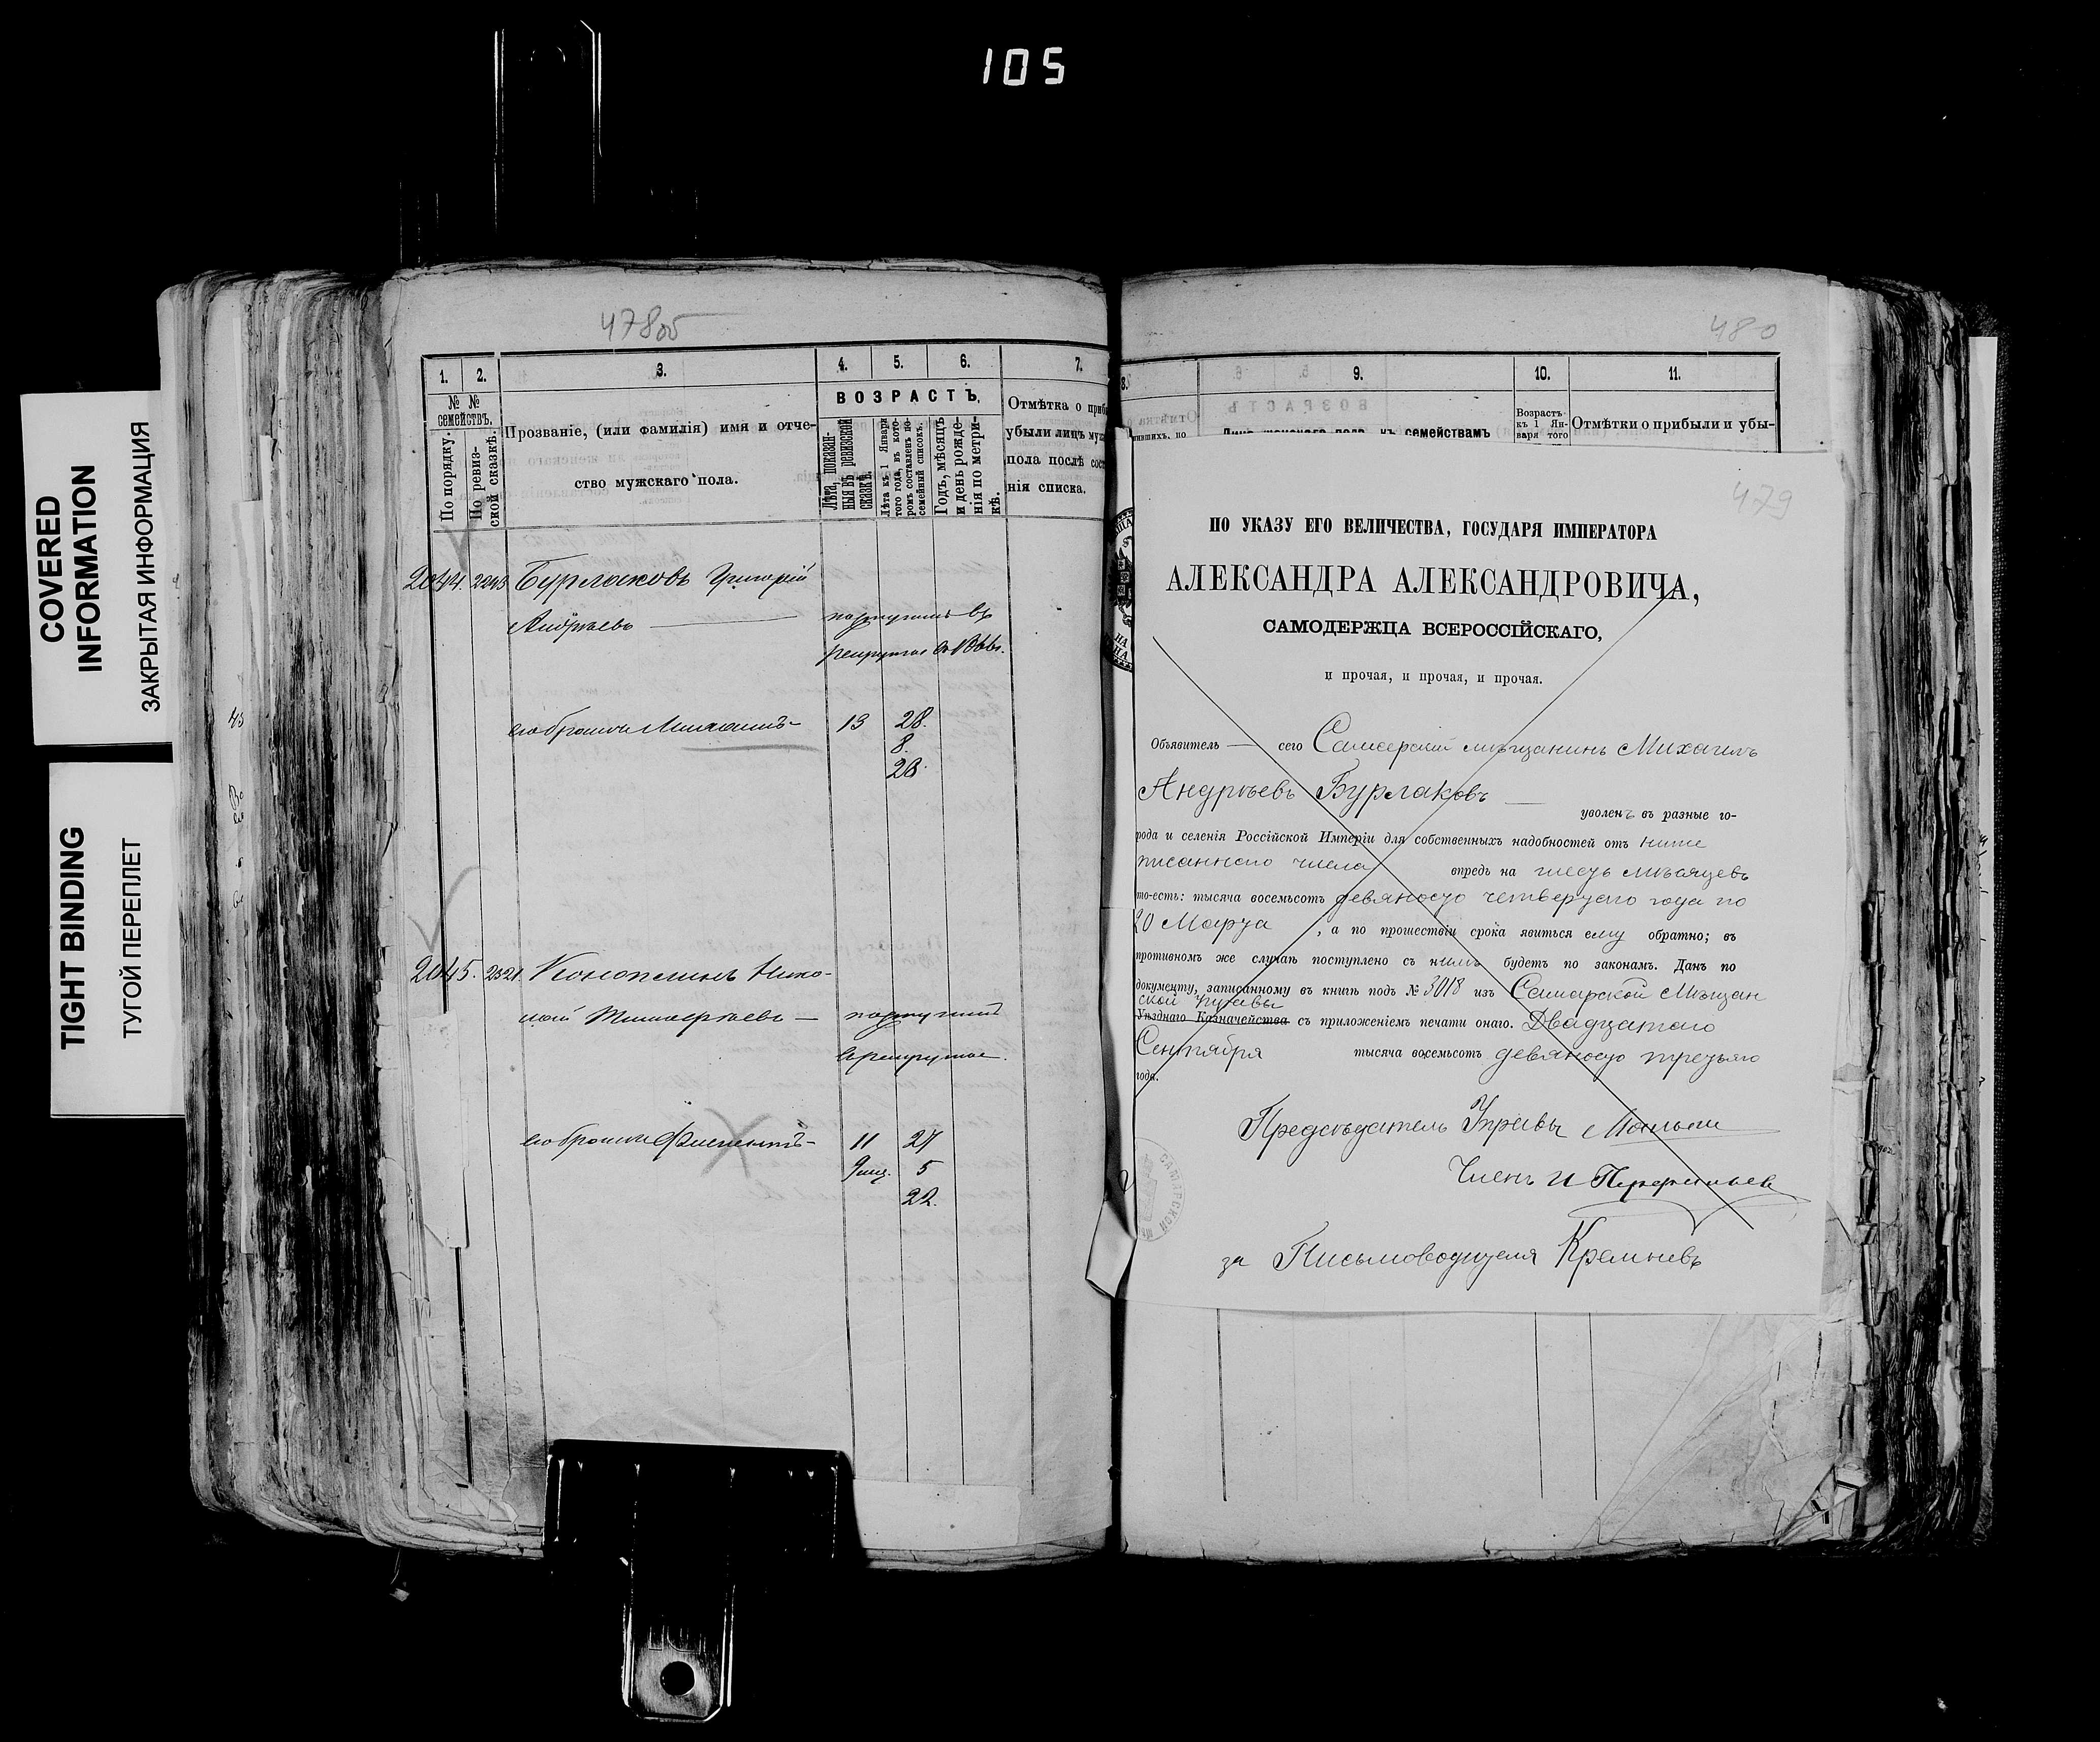 105
COVERED
INFORMATION
ЗАКРЫТАЯ ИНФОРМАЦИЯ
TIGHT BINDING
ТУГОЙ ПЕРЕПЛЕТ
478об
1. 2. 3. 4. 5. 6. 7.
№ №
семействъ.
По порядку.
По ревиз-
ской сказкѣ.
Прозваніе, (или фамилія) имя и отче-
ство мужскаго пола.
ВОЗРАСТЪ,
Лѣта, показан-
ныя въ ревизской
сказкѣ.
Лѣта къ 1 Января
того года, въ кото-
ромъ составленъ по-
семейный списокъ.
Годъ, мѣсяцъ
и день рожде-
нія по метри-
кѣ.
Отмѣтка о приб
убыли лицъ муж
пола послѣ сост
нія списка.
2044. 2243 Бурлаковъ Григорій
Андреевъ поступилъ въ
рекруты въ
его братъ Михаилъ 13 28.
8.
20.
2045. 2321. Конопличъ Нико-
лай поступилъ
в рекруты.
его братъ 11 27
9 мц. 5
22.
480
8. 9. 10. 11.
Лица женскаго пола къ семействамъ
Возрастъ
къ 1 Ян-
варя того
Отмѣтки о прибыли и убы-
479
ПО УКАЗУ ЕГО ВЕЛИЧЕСТВА, ГОСУДАРЯ ИМПЕРАТОРА
АЛЕКСАНДРА АЛЕКСАНДРОВИЧА,
САМОДЕРЖЦА ВСЕРОССІЙСКАГО,
и прочая, и прочая, и прочая.
Объявитель — сего Самарскій мѣщанинъ Михаилъ
Андреевъ Бурлаковъ
уволенъ въ разные го-
рода и селенія Россійской Имперіи для собственныхъ надобностей отъ ниже
писаннаго числа впредь на шесть мѣсяцевъ
то-есть: тысяча восемьсотъ девяносто четвертаго года по
20 Марта, а по прошествіи срока явиться ему обратно; въ
противномъ же случаѣ поступлено съ нимъ будетъ по законамъ. Данъ по
документу, записанному въ книгѣ подъ № 3018 изъ Самарской Мѣщан
ской Управы
Уѣзднаго Казначейства съ приложеніемъ печати онаго. Двадцатаго
Сентября тысяча восемьсотъ девяносто третьяго
года.
Предсѣдатель Управы
Членъ И
за Письмоводителя Кремневъ
САМАРСКОЙ